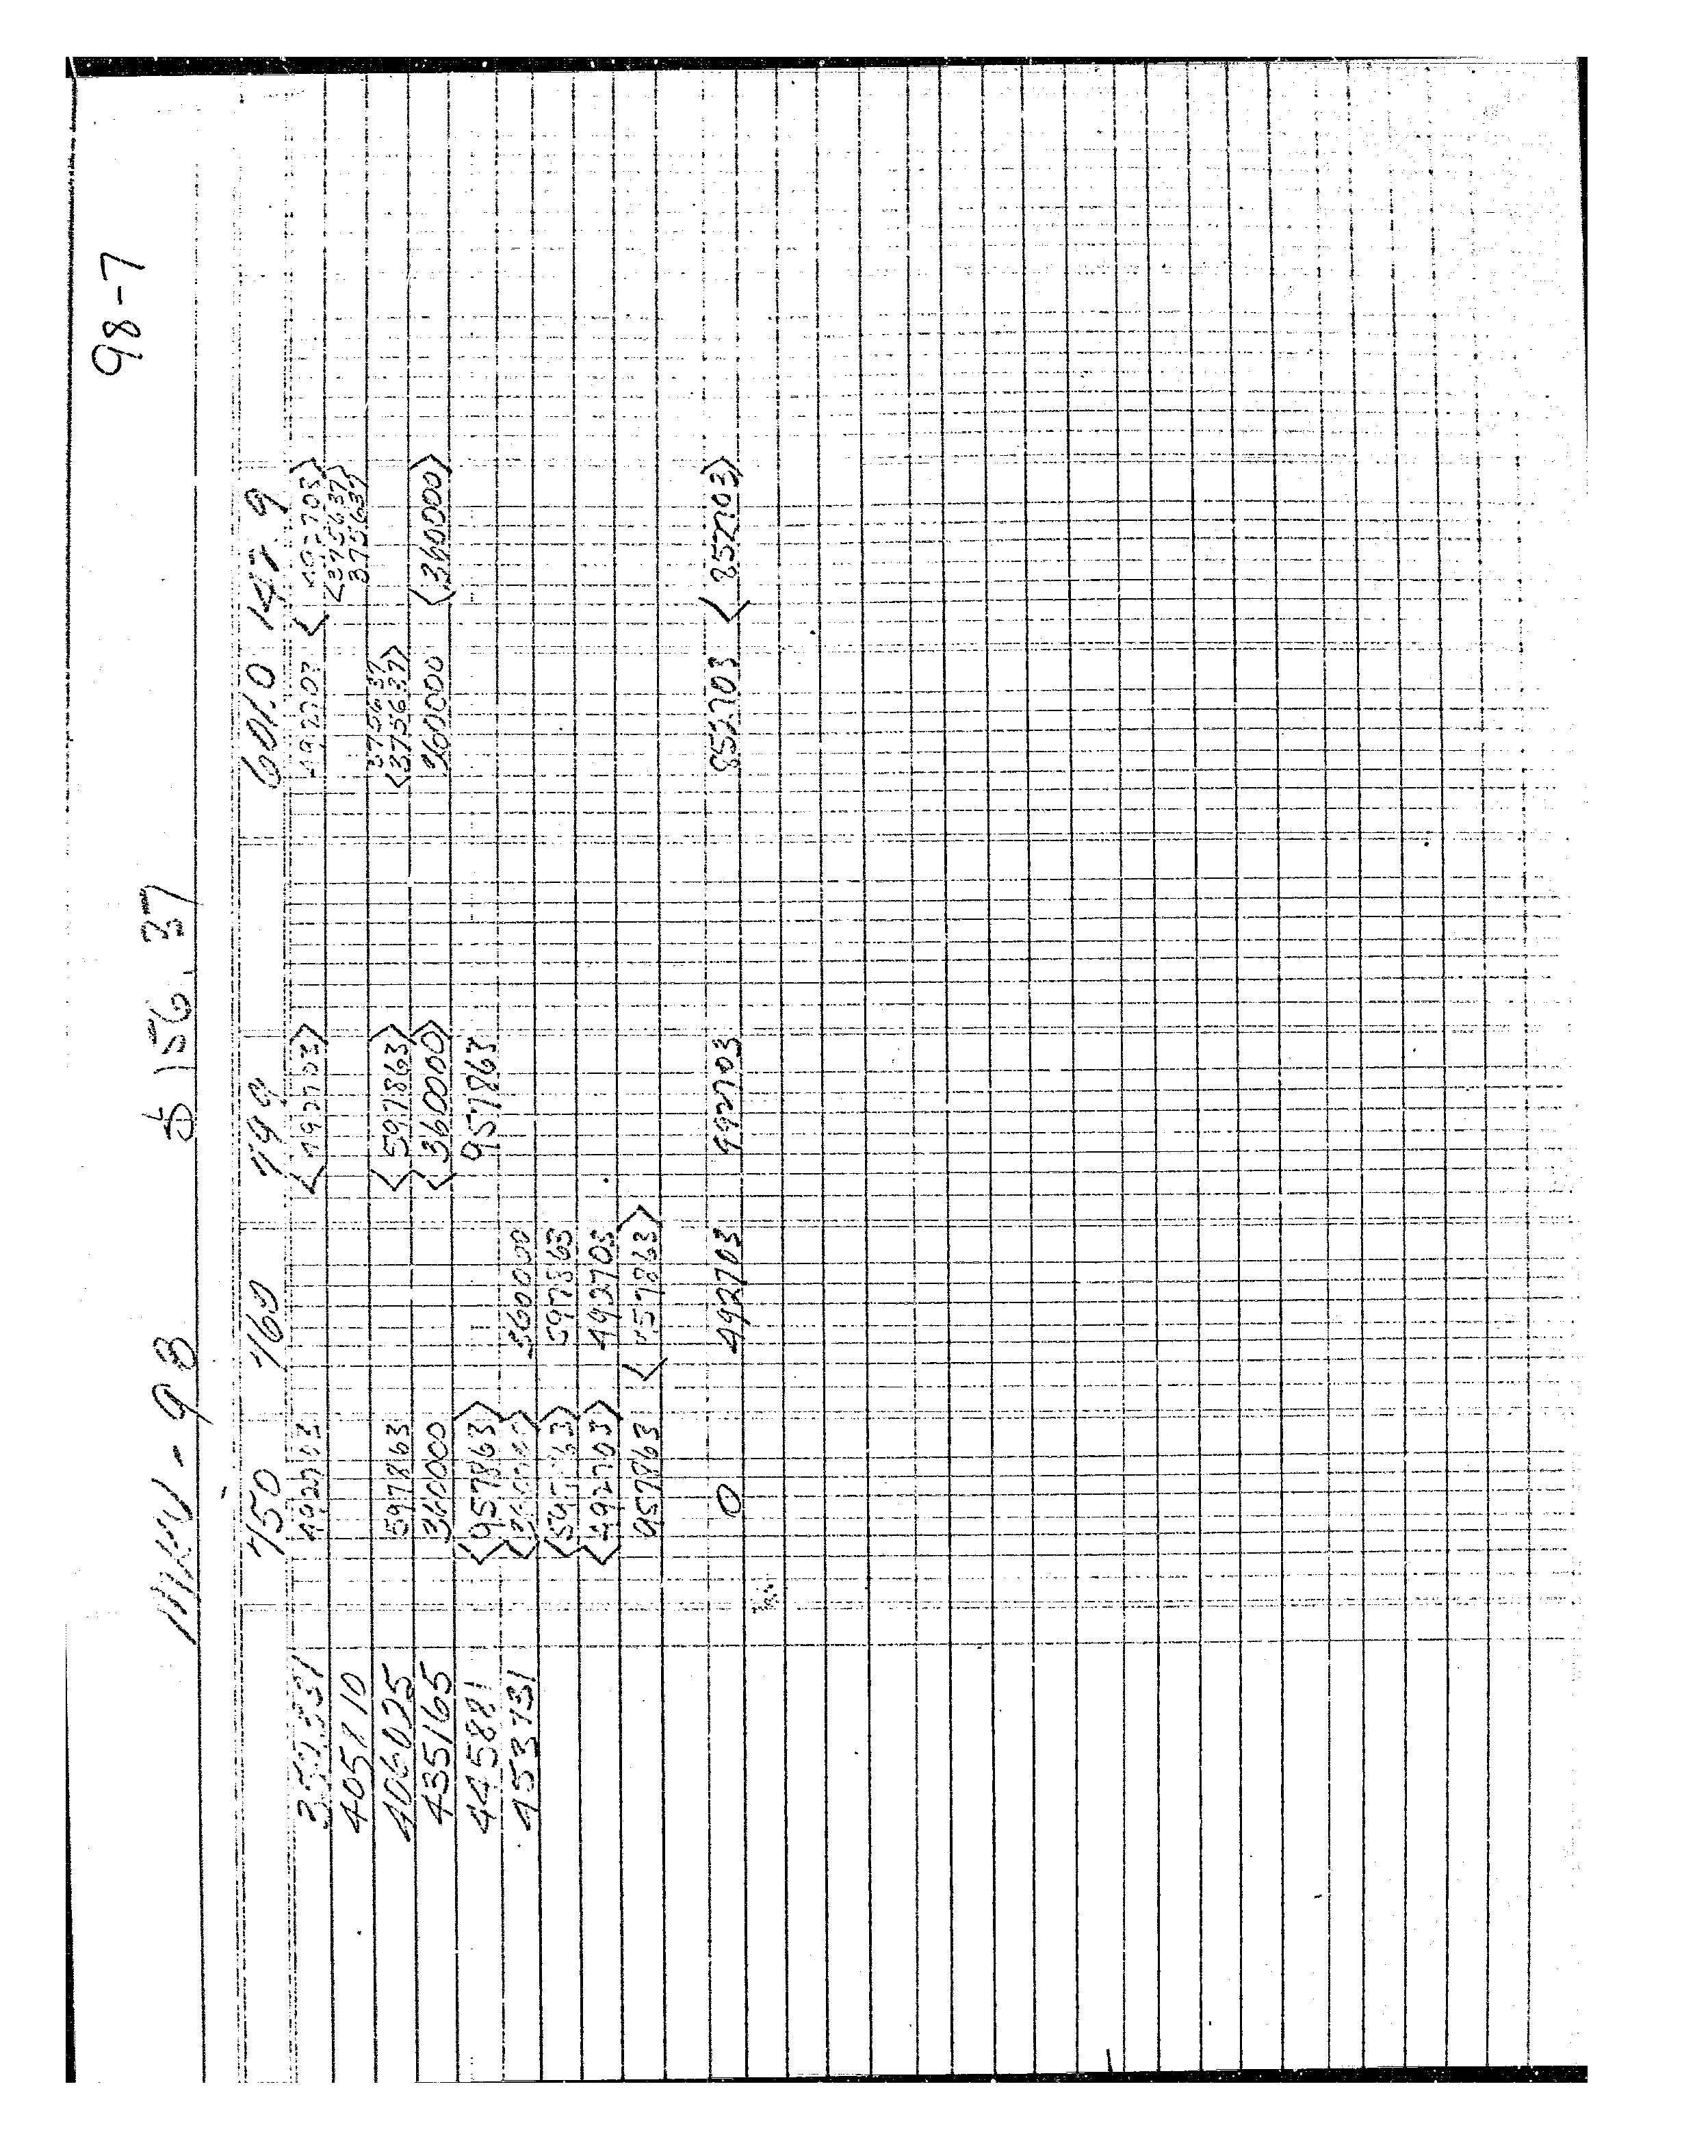 98-7
MKU - 93 $ 156.37
450 460 499 601.0 147.9
357831 492703 <492703> 492703 <492703>
405810 <375637> 375637
406025 597863 <597863> 375637 <375637>
435165 360000 <360000> 360000 <360000>
445881 <957863> 957863
453731 <360000> 360000
<597863> 597863
<492703> 492703
957863 <957863>
0 492703 492703 852703 <852703>